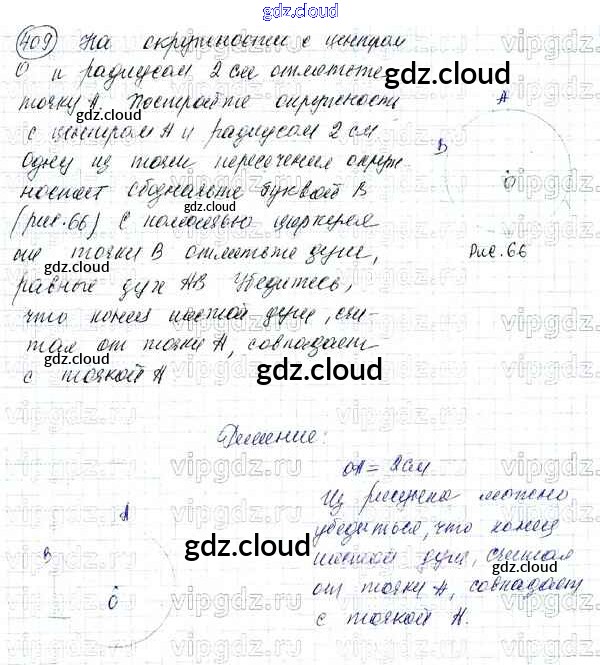 gdz.cloud
409 На окружности с центром
О и радиусом 2 см отметьте
точку А. Постройте окружность
с центром А и радиусом 2 см.
Одну из точек пересечения окруж-
ностей обозначьте буквой В
(рис. 66) С помощью циркуля
от точки В отметьте дуги,
равные дуге АВ Убедитесь,
что конец шестой дуги, счи-
тая от точки А, совпадает
с точкой А
А
В
О
Рис. 66
Решение:
ОА = 2 см
Из рисунка можно
убедиться, что конец
шестой дуги, считая
от точки А, совпадает
с точкой А.
А
В
О
gdz.cloud
gdz.cloud
gdz.cloud
gdz.cloud
gdz.cloud
gdz.cloud
gdz.cloud
gdz.cloud
vipgdz.ru
vipgdz.ru
vipgdz.ru